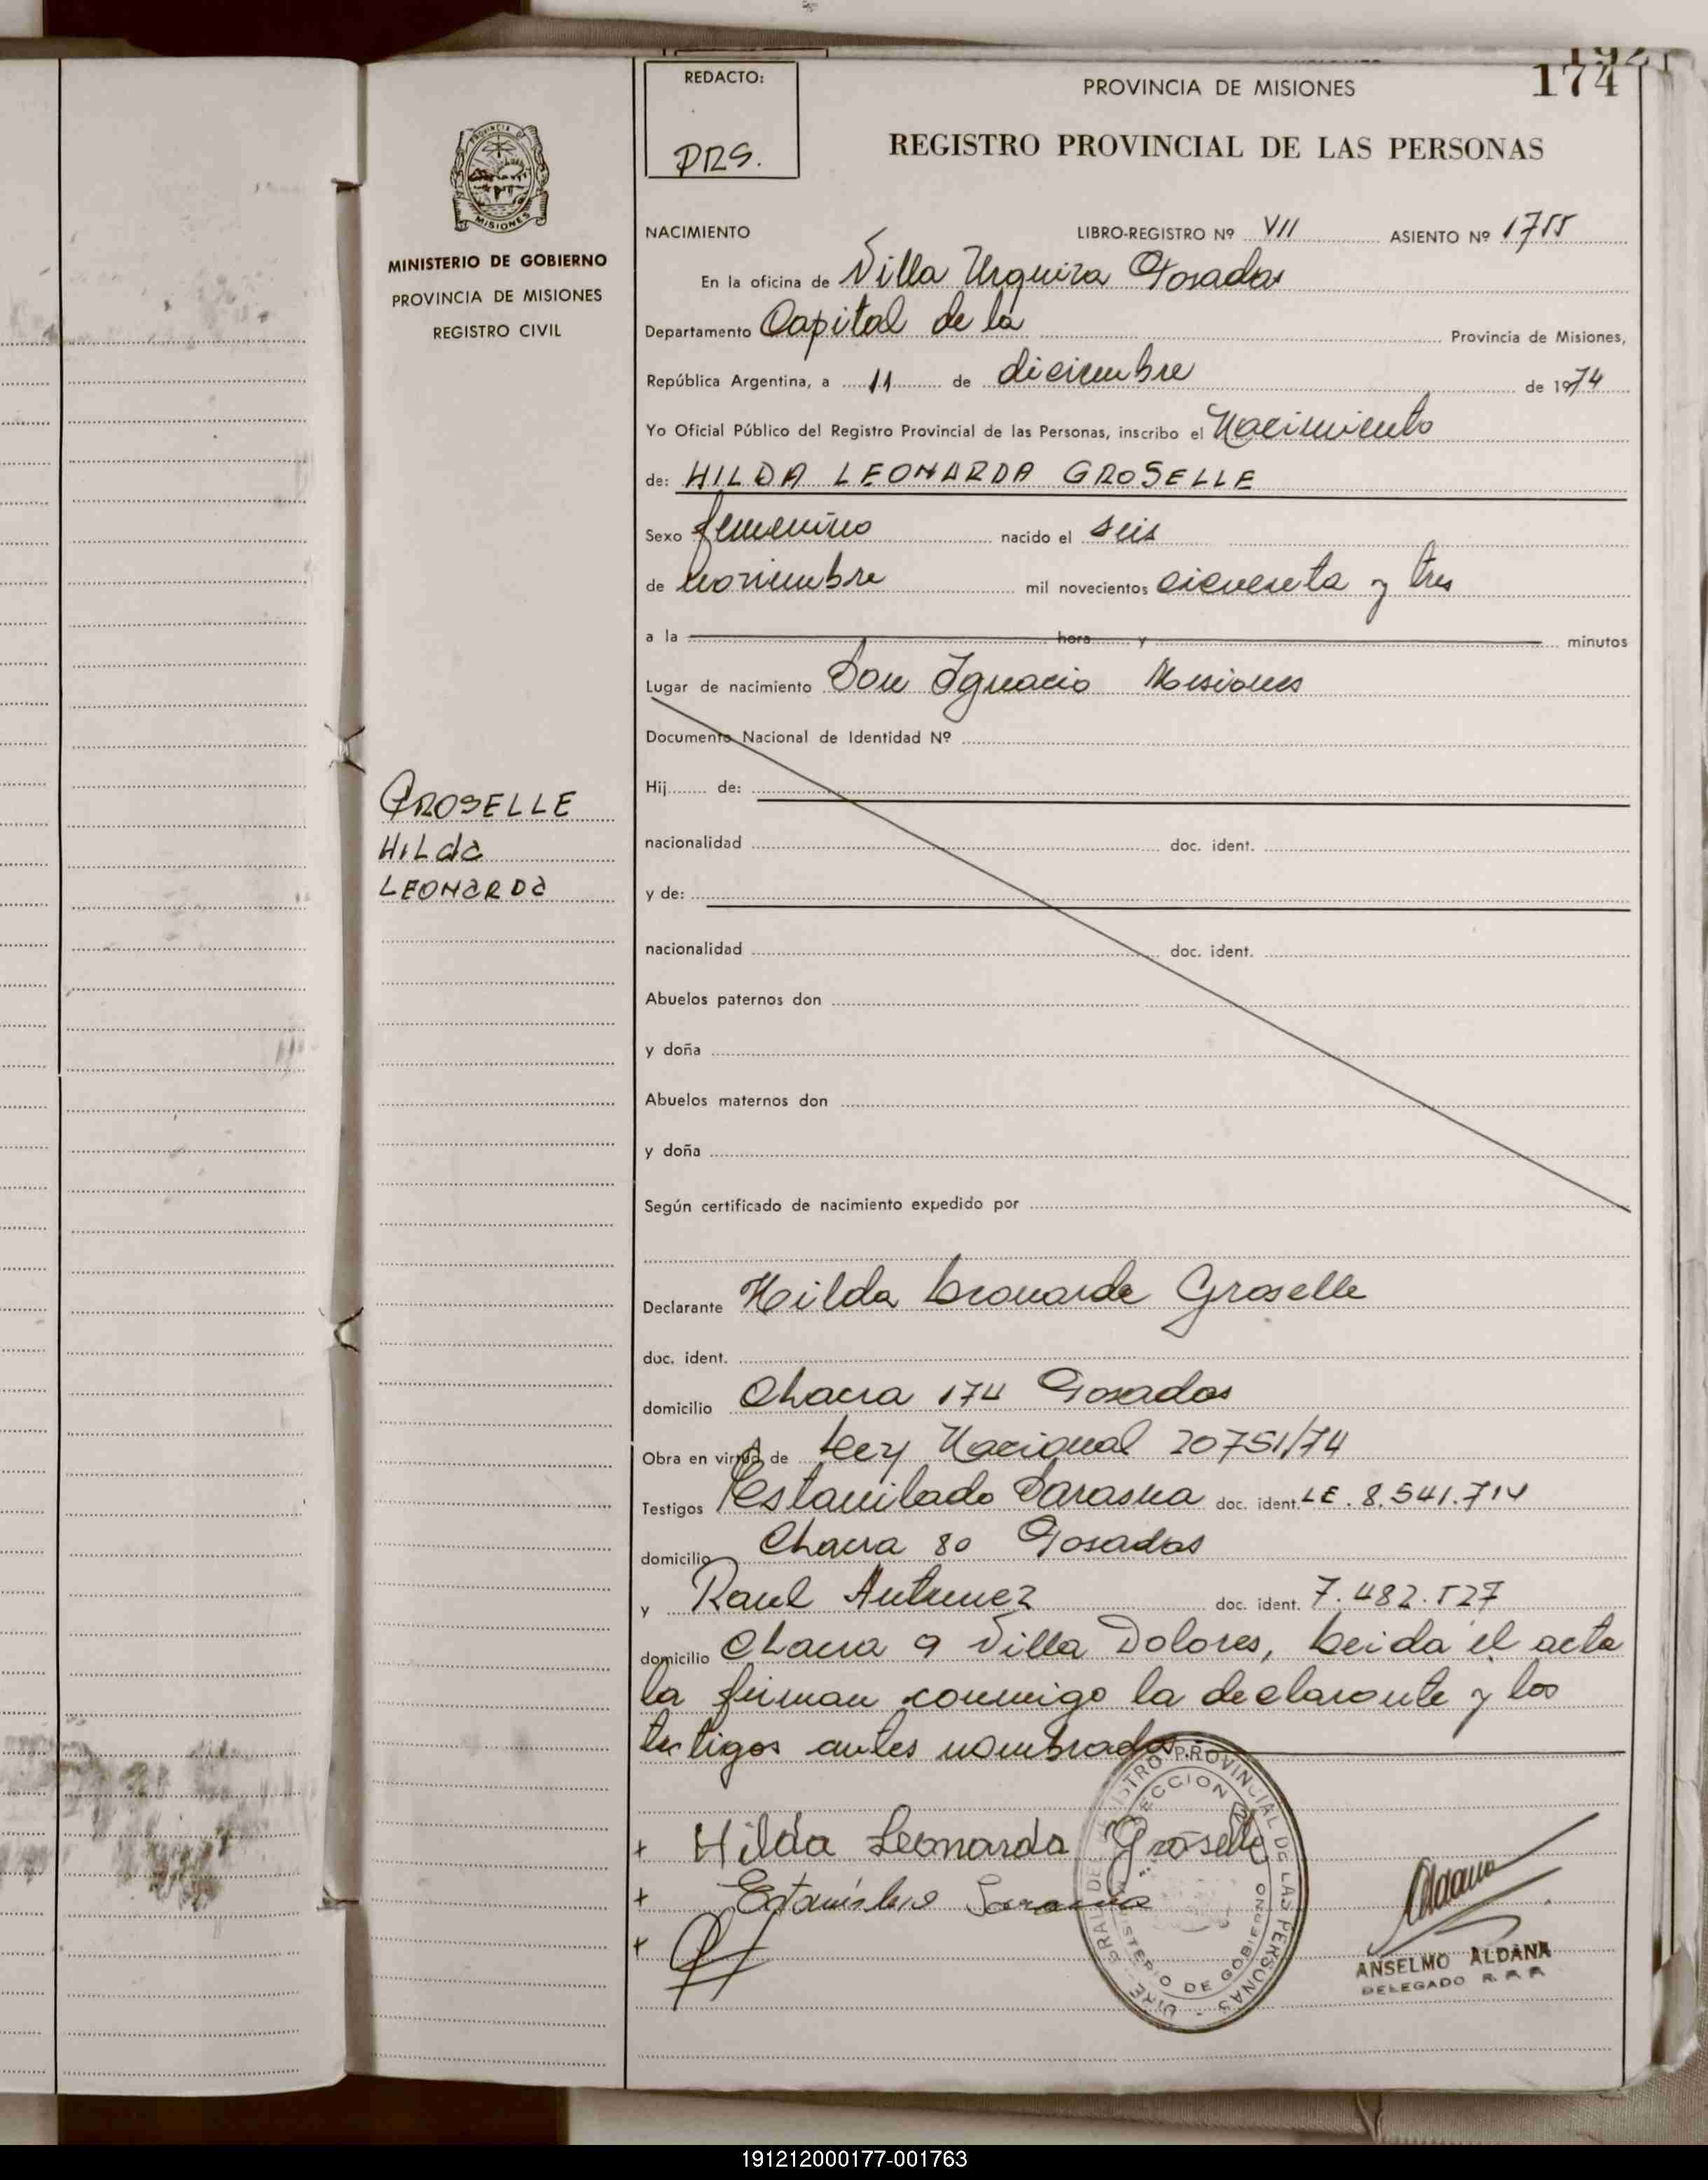 174
REDACTO:
PRS.
PROVINCIA DE MISIONES
REGISTRO PROVINCIAL DE LAS PERSONAS
MISIONES
MINISTERIO DE GOBIERNO
PROVINCIA DE MISIONES
REGISTRO CIVIL
GROSELLE
HILda
LEONaRDa
NACIMIENTO LIBRO-REGISTRO Nº VII ASIENTO Nº 1755
En la oficina de Villa Urquiza Posadas
Departamento Capital de la Provincia de Misiones,
República Argentina, a 11 de diciembre de 1974
Yo Oficial Público del Registro Provincial de las Personas, inscribo el Nacimiento
de: HILDA LEONARDA GROSELLE
Sexo femenino nacido el seis
de noviembre mil novecientos cincuenta y tres
a la hora y minutos
Lugar de nacimiento San Ignacio Misiones
Documento Nacional de Identidad Nº
Hij de:
nacionalidad doc. ident.
y de:
nacionalidad doc. ident.
Abuelos paternos don
y doña
Abuelos maternos don
y doña
Según certificado de nacimiento expedido por
Declarante Hilda Leonarda Groselle
doc. ident.
domicilio Chacra 174 Posadas
Obra en virtud de Ley Nacional 20751/74
Testigos Estanilado Sarasua doc. ident. LE. 8.541.714
domicilio Chacra 80 Posadas
y Raul Antunez doc. ident. 7.482.527
domicilio Chacra 9 Villa Dolores, Leida el acta
la firman conmigo la declarante y los
testigos antes nombrados.
+ Hilda Leonarda Groselle
+
+
REGISTRO PROVINCIAL DE LAS PERSONAS
MINISTERIO DE GOBIERNO
ANSELMO ALDANA
DELEGADO R. P. P.
191212000177-001763